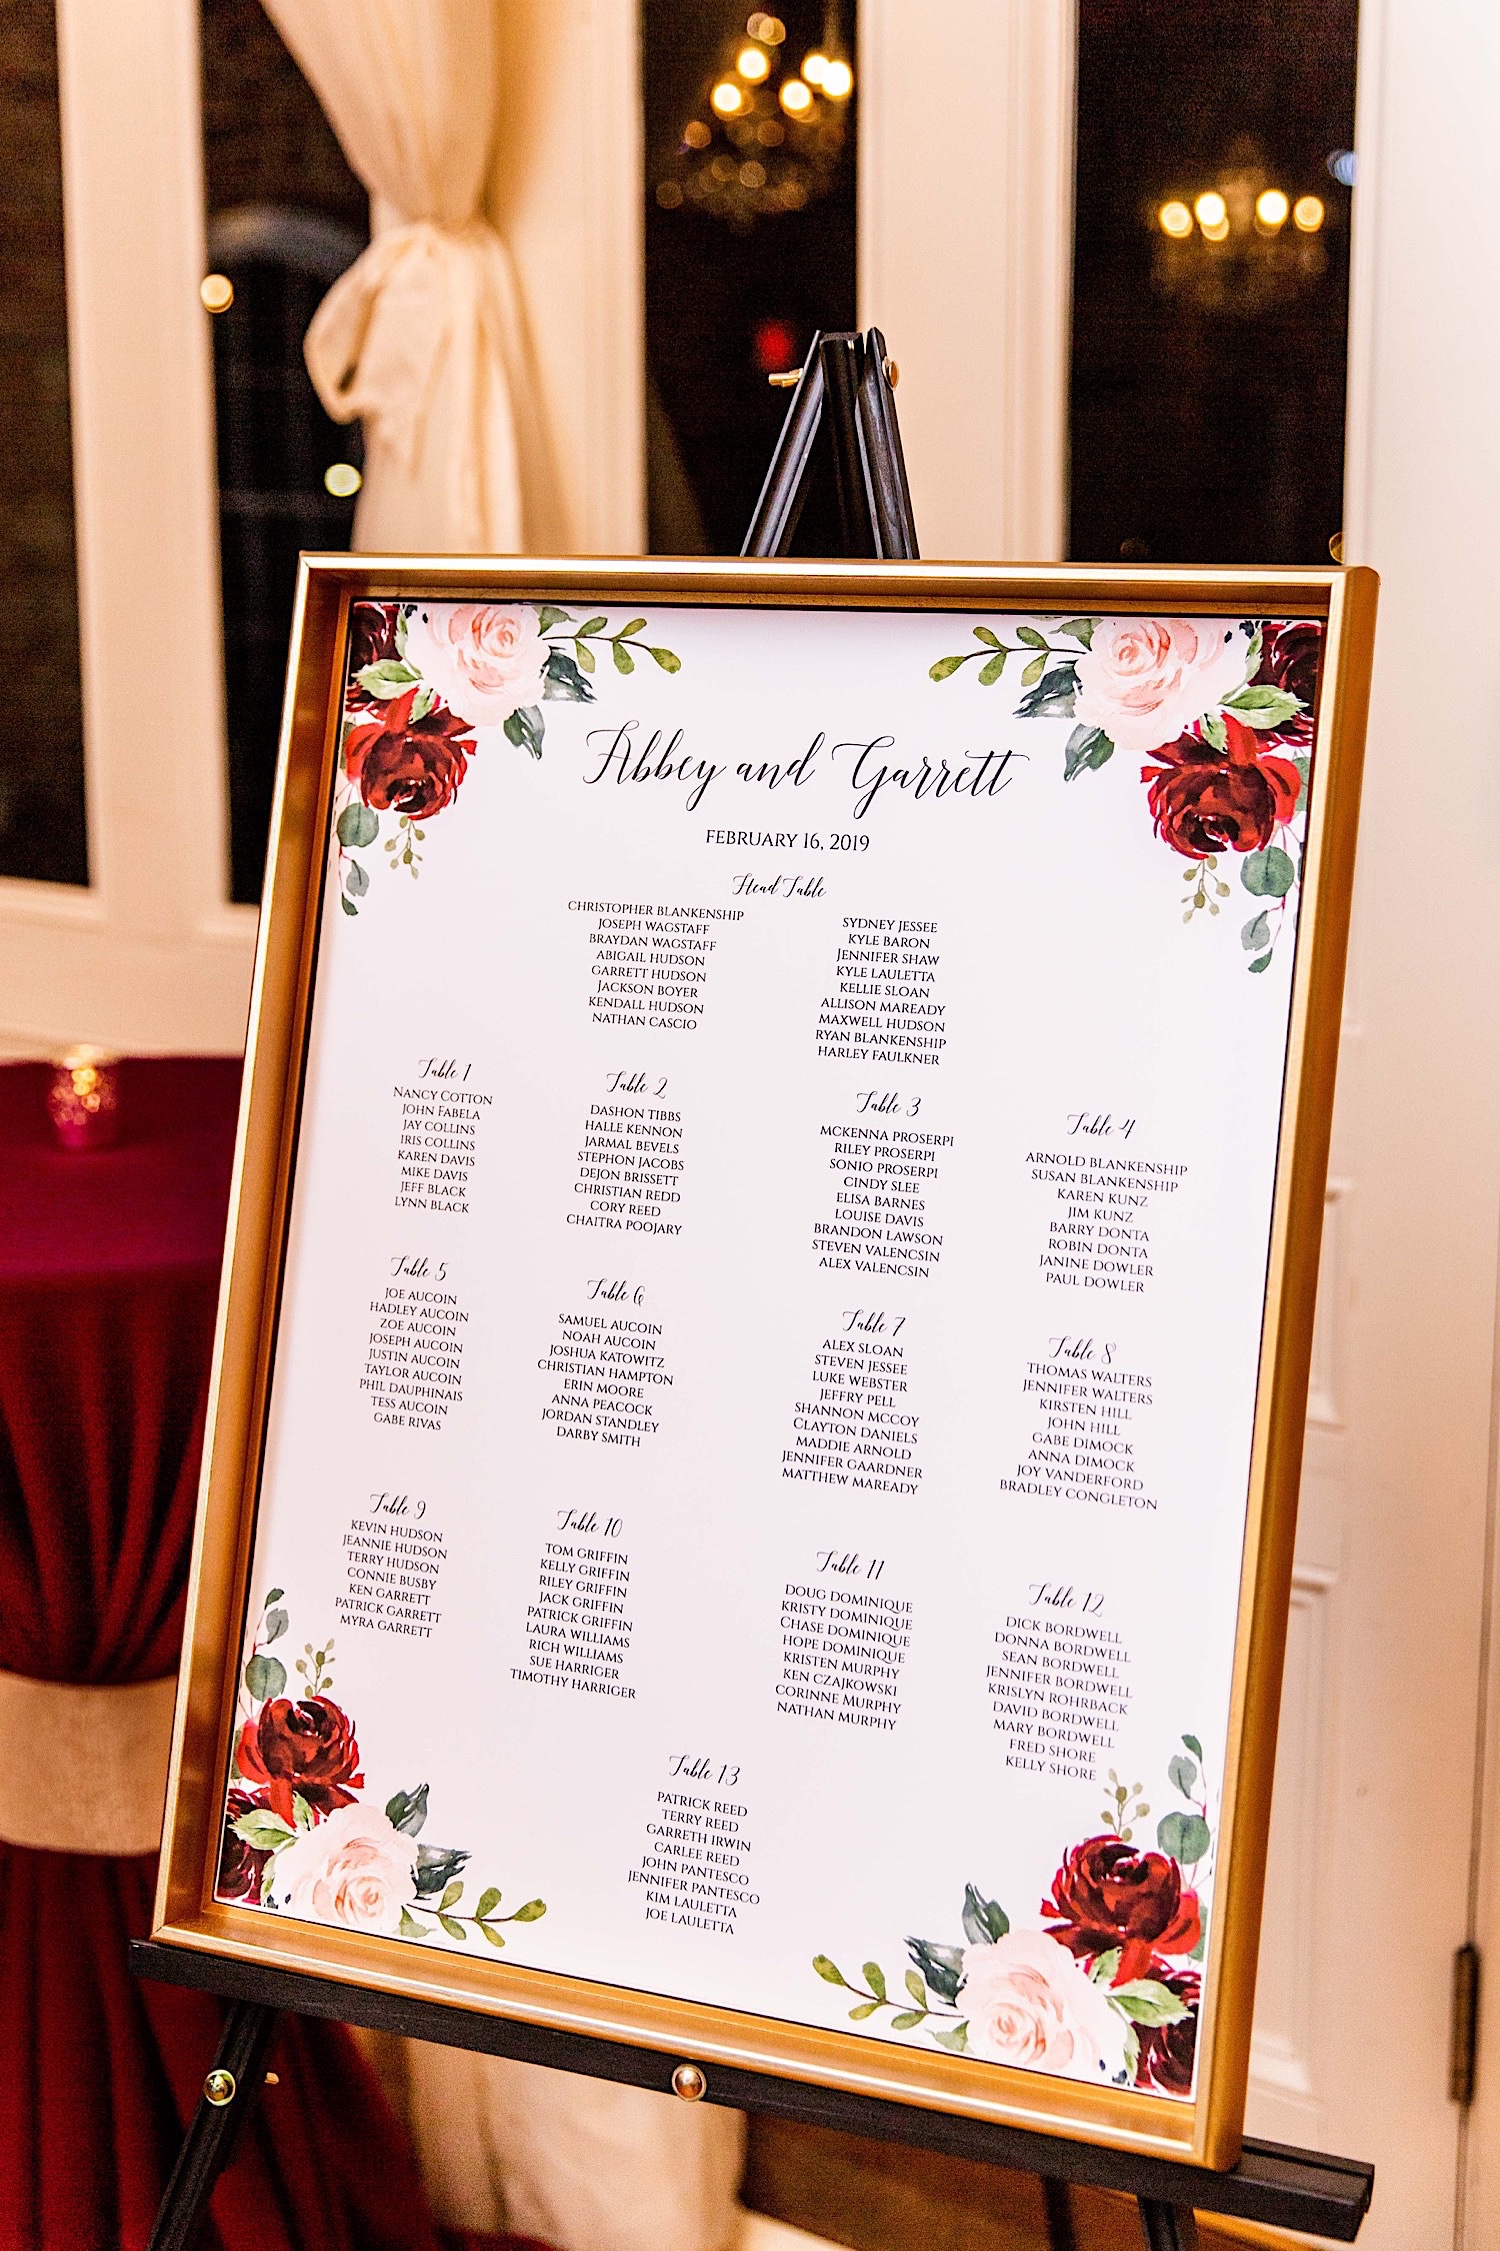 Abbey and Garrett
FEBRUARY 16, 2019
Head Table
CHRISTOPHER BLANKENSHIP
JOSEPH WAGSTAFF
BRAYDAN WAGSTAFF
ABIGAIL HUDSON
GARRETT HUDSON
JACKSON BOYER
KENDALL HUDSON
NATHAN CASCIO
SYDNEY JESSEE
KYLE BARON
JENNIFER SHAW
KYLE LAULETTA
KELLIE SLOAN
ALLISON MAREADY
MAXWELL HUDSON
RYAN BLANKENSHIP
HARLEY FAULKNER
Table 1
NANCY COTTON
JOHN FABELA
JAY COLLINS
IRIS COLLINS
KAREN DAVIS
MIKE DAVIS
JEFF BLACK
LYNN BLACK
Table 2
DASHON TIBBS
HALLE KENNON
JARMAL BEVELS
STEPHON JACOBS
DEJON BRISSETT
CHRISTIAN REDD
CORY REED
CHAITRA POOJARY
Table 3
MCKENNA PROSERPI
RILEY PROSERPI
SONIO PROSERPI
CINDY SLEE
ELISA BARNES
LOUISE DAVIS
BRANDON LAWSON
STEVEN VALENCSIN
ALEX VALENCSIN
Table 4
ARNOLD BLANKENSHIP
SUSAN BLANKENSHIP
KAREN KUNZ
JIM KUNZ
BARRY DONTA
ROBIN DONTA
JANINE DOWLER
PAUL DOWLER
Table 5
JOE AUCOIN
HADLEY AUCOIN
ZOE AUCOIN
JOSEPH AUCOIN
JUSTIN AUCOIN
TAYLOR AUCOIN
PHIL DAUPHINAIS
TESS AUCOIN
GABE RIVAS
Table 6
SAMUEL AUCOIN
NOAH AUCOIN
JOSHUA KATOWITZ
CHRISTIAN HAMPTON
ERIN MOORE
ANNA PEACOCK
JORDAN STANDLEY
DARBY SMITH
Table 7
ALEX SLOAN
STEVEN JESSEE
LUKE WEBSTER
JEFFRY PELL
SHANNON MCCOY
CLAYTON DANIELS
MADDIE ARNOLD
JENNIFER GAARDNER
MATTHEW MAREADY
Table 8
THOMAS WALTERS
JENNIFER WALTERS
KIRSTEN HILL
JOHN HILL
GABE DIMOCK
ANNA DIMOCK
JOY VANDERFORD
BRADLEY CONGLETON
Table 9
KEVIN HUDSON
JEANNIE HUDSON
TERRY HUDSON
CONNIE BUSBY
KEN GARRETT
PATRICK GARRETT
MYRA GARRETT
Table 10
TOM GRIFFIN
KELLY GRIFFIN
RILEY GRIFFIN
JACK GRIFFIN
PATRICK GRIFFIN
LAURA WILLIAMS
RICH WILLIAMS
SUE HARRIGER
TIMOTHY HARRIGER
Table 11
DOUG DOMINIQUE
KRISTY DOMINIQUE
CHASE DOMINIQUE
HOPE DOMINIQUE
KRISTEN MURPHY
KEN CZAJKOWSKI
CORINNE MURPHY
NATHAN MURPHY
Table 12
DICK BORDWELL
DONNA BORDWELL
SEAN BORDWELL
JENNIFER BORDWELL
KRISLYN ROHRBACK
DAVID BORDWELL
MARY BORDWELL
FRED SHORE
KELLY SHORE
Table 13
PATRICK REED
TERRY REED
GARRETH IRWIN
CARLEE REED
JOHN PANTESCO
JENNIFER PANTESCO
KIM LAULETTA
JOE LAULETTA